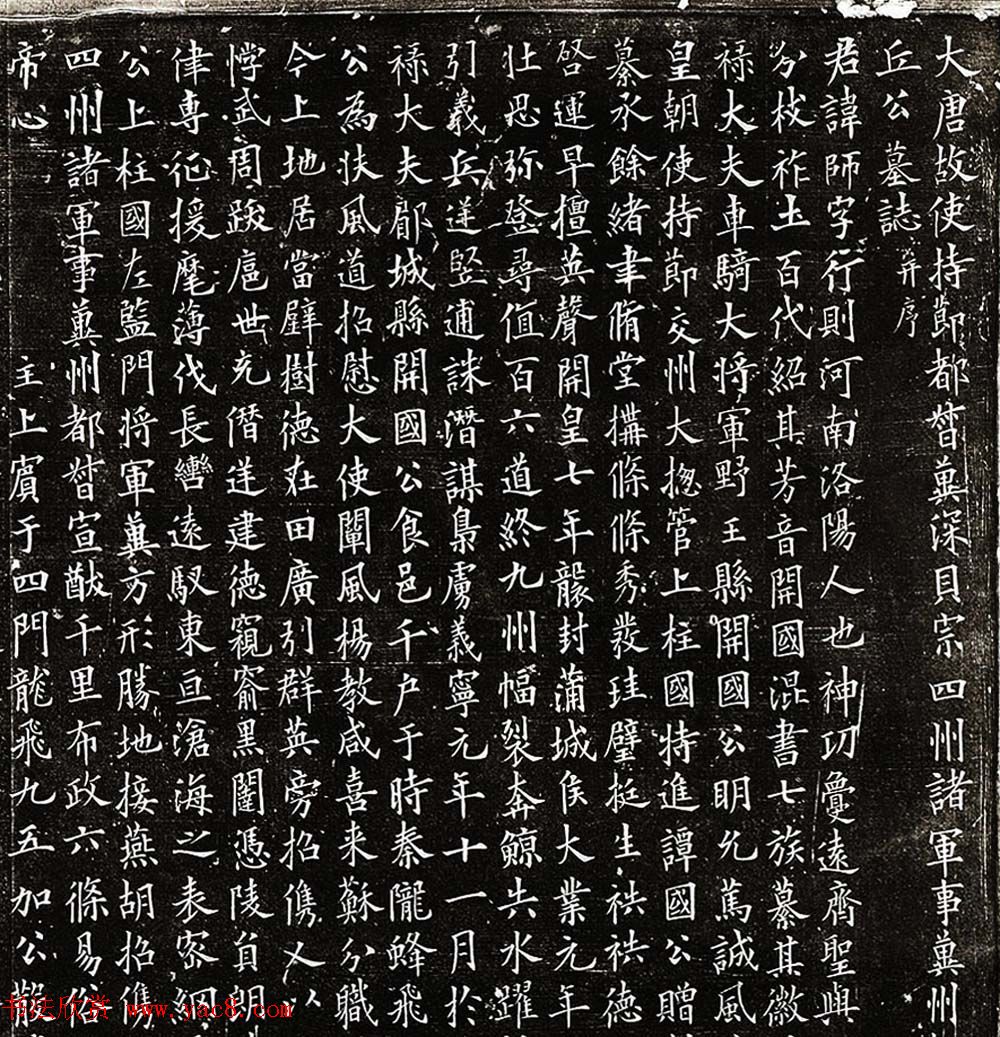 大唐故使持節都督冀深貝宗四州諸軍事冀州
丘公墓誌并序
君諱師字行則河南洛陽人也神功疊遠齊聖與
分枝祚土百代紹其芳音開國混書七族纂其徽
祿大夫車騎大將軍野王縣開國公明允篤誠風
皇朝使持節交州大揔管上柱國特進譚國公贈
纂承餘緒聿脩堂構條條秀發珪璧挺生祑祑德
啓運早擅英聲開皇七年襲封蒲城侯大業元年
壯思弥登尋值百六道終九州幅裂奔鯨共水躍
引義兵逆竪逋誅潛謀梟虜義寧元年十一月於
祿大夫郿城縣開國公食邑千户于時秦隴蜂飛
公為扶風道招慰大使闡風楊教咸喜来蘇分職
今上地居當璧樹德在田廣引群英旁招儁乂以
悖武周跋扈世充僭逆建德窺窬黑闥憑陵自
律專征援麾薄伐長轡遠馭東亘滄海之表密網
公上柱國左監門將軍冀方形勝地接燕胡招儁
四州諸軍事冀州都督宣猷千里布政六條易俗
帝心 主上賓于四門龍飛九五加公散
书法欣赏 www.yac8.com